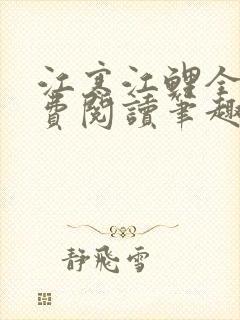 江寒江鯉全
費閱讀筆趣
靜飛雪